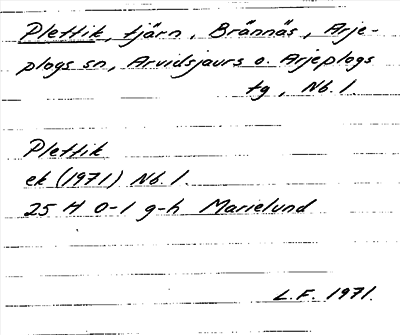 Plettik, tjärn, Brännäs, Arje-
plogs sn, Arvidsjaurs o. Arjeplogs
tg, Nb. l.
Plettik
ek (1971) Nb. l.
25 H 0-1 g-h Marielund
L.F. 1971.